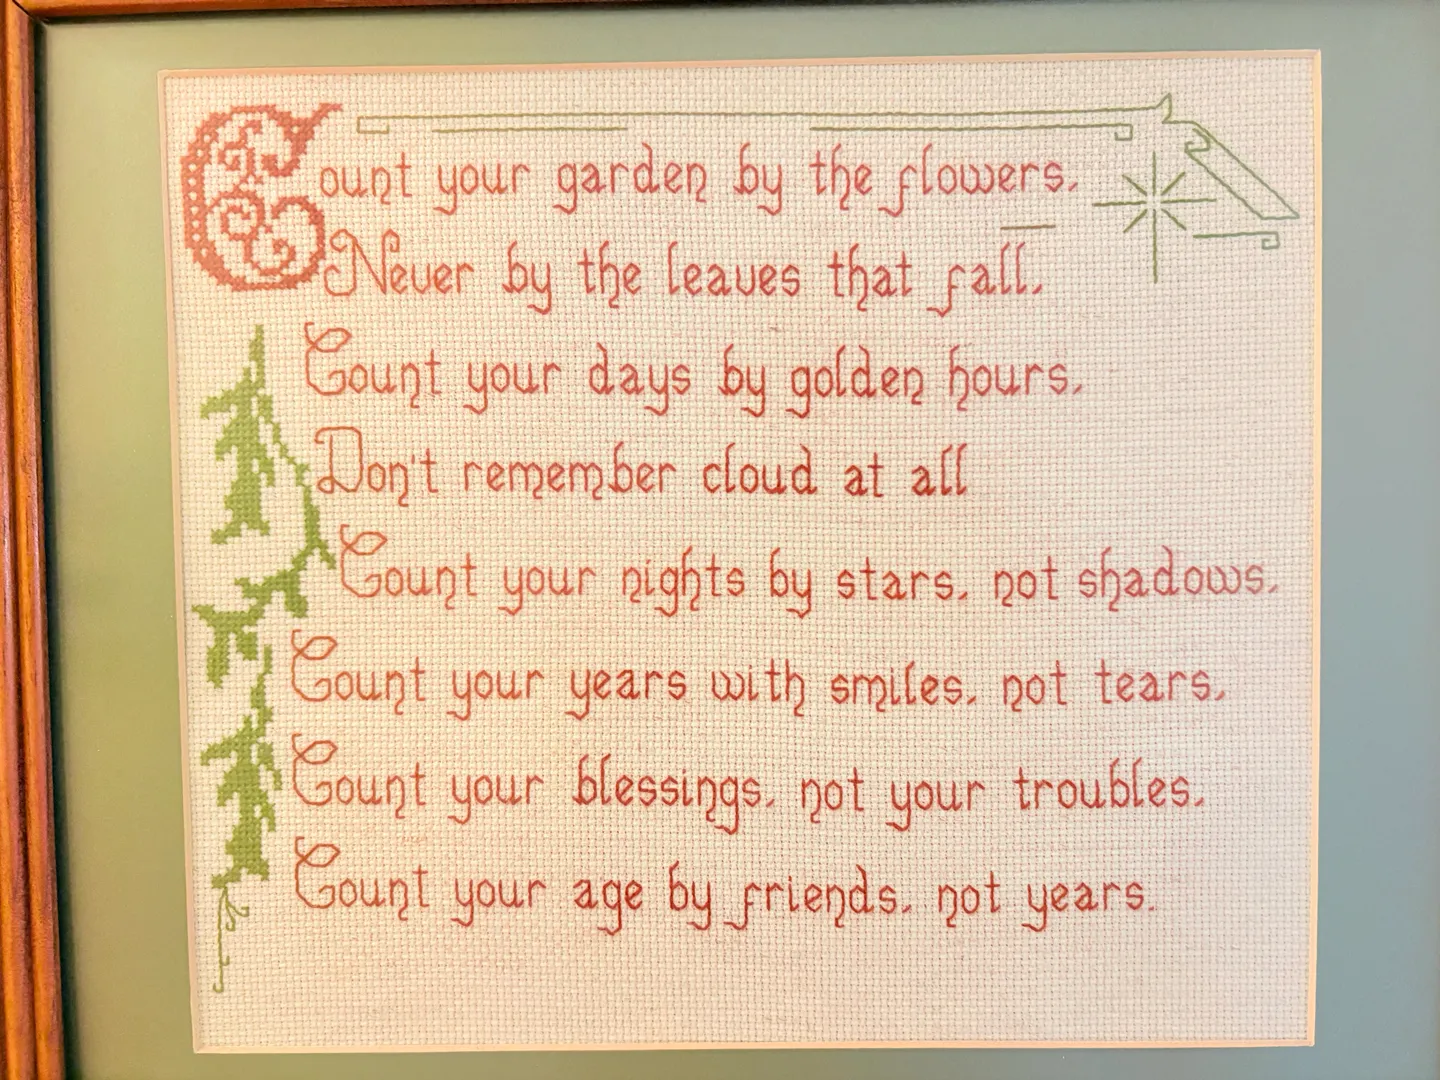 Count your garden by the flowers,
Never by the leaves that fall,
Count your days by golden hours,
Don't remember cloud at all
Count your nights by stars, not shadows,
Count your years with smiles, not tears,
Count your blessings, not your troubles,
Count your age by friends, not years.